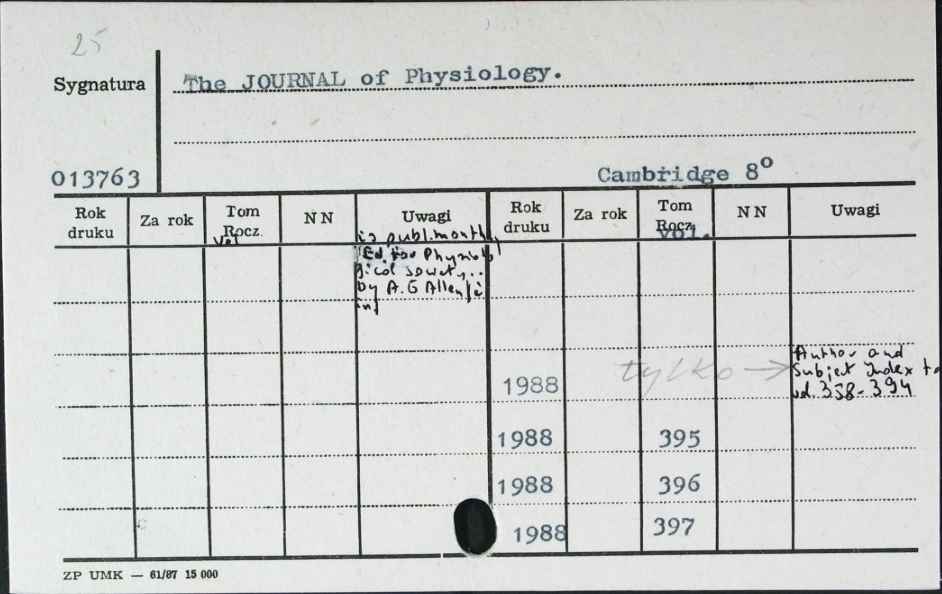 25
Sygnatura
The JOURNAL of Physiology.
013763
Cambridge 8°
Rok druku Za rok Tom Rocz. NN Uwagi Rok druku Za rok Tom Rocz. NN Uwagi
Vol. vol.
is publ. month,
Ed. for Physiolo
gical
by A.G Allen
1988 tylko → Author and
Subject Index to
vol. 358-394
1988 395
1988 396
1988 397
ZP UMK — 61/87 15 000